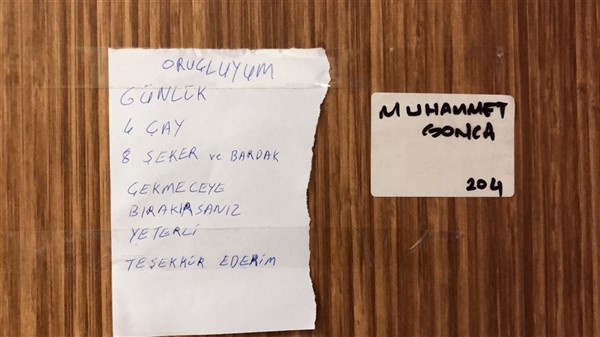 ORUÇLUYUM
GÜNLÜK
4 ÇAY
8 ŞEKER ve BARDAK
ÇEKMECEYE
BIRAKIRSANIZ
YETERLİ
TEŞEKKÜR EDERİM
MUHAMMET
GONCA
204